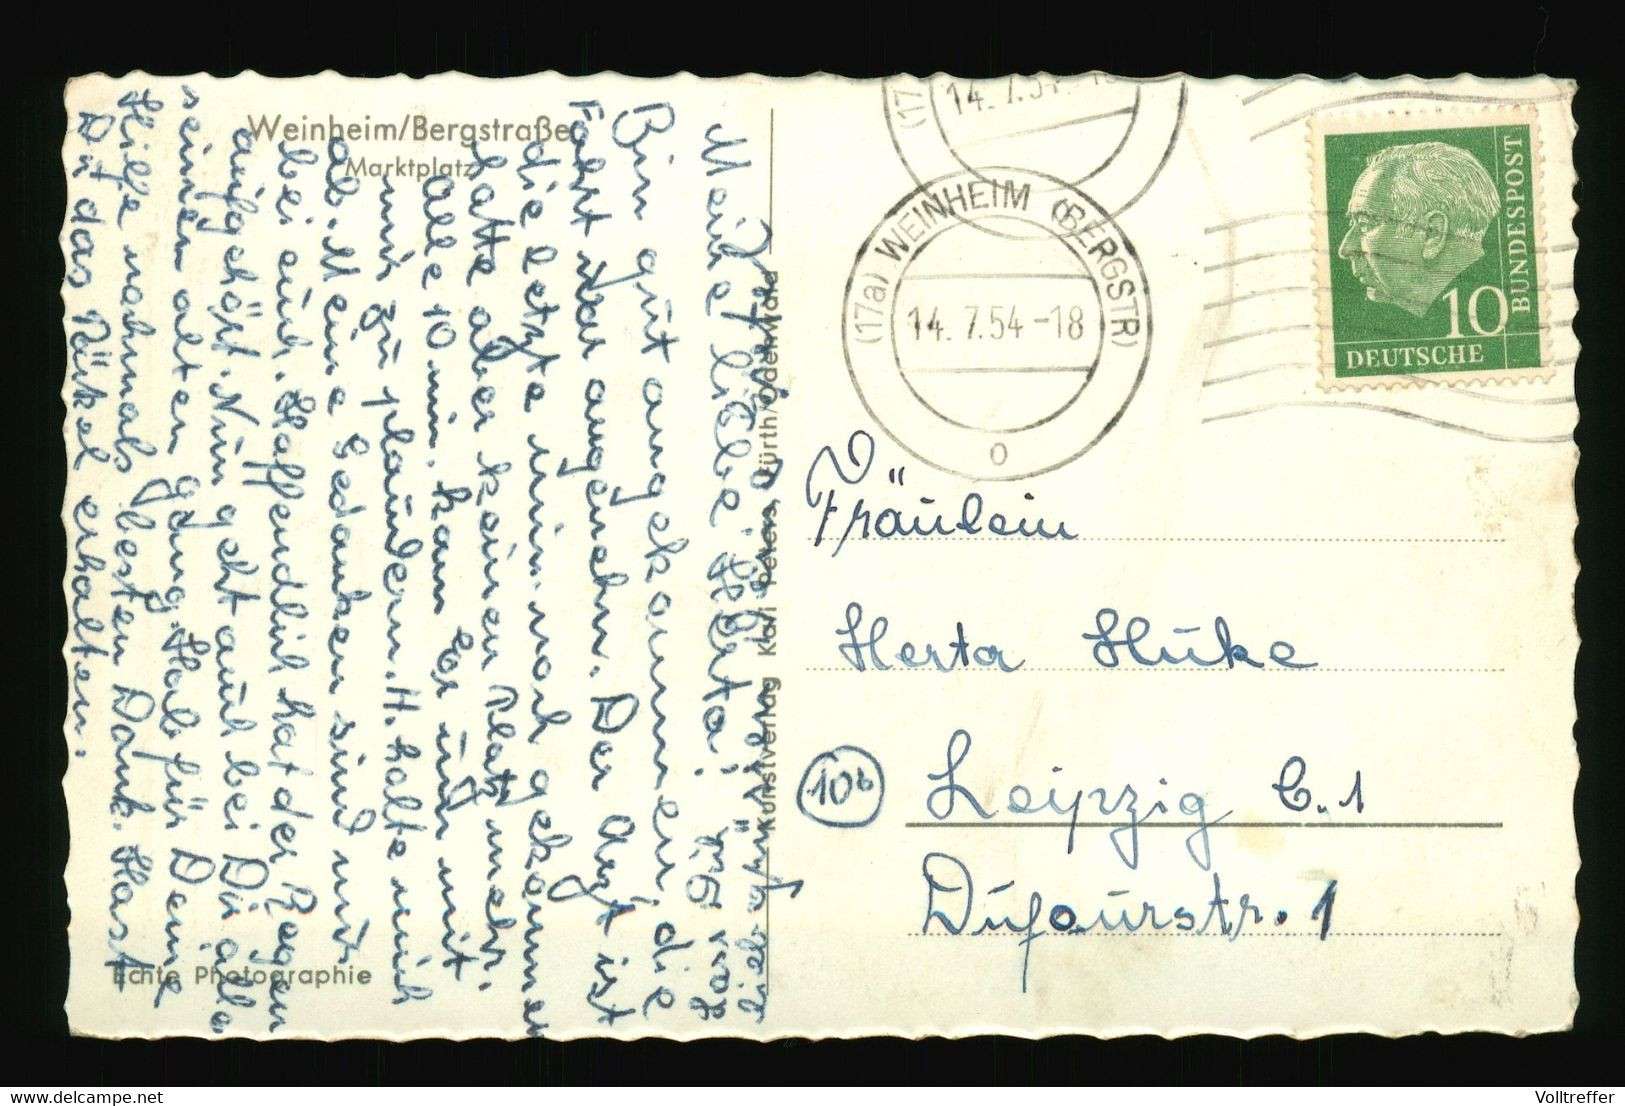 Weinheim/Bergstraße
Marktplatz
Meine liebe Herta!
Bin gut angekommen, die
Fahrt war angenehm. Der Arzt ist
die letzte min. noch gekommen
hatte aber keinen Platz mehr.
Alle 10 min. kam Er um mit
mir zu plaudern. H. halte mich
ab. Meine Gedanken sind nur
bei euch. Hoffendlich hat der Regen
aufgehört. Nun geht auch bei Dir alles
seinen alten gang. Hab für Deine
Hilfe nochmals besten Dank. Hast
Du das Päkel erhalten.
Echte Photographie
Kunstverlag Karl Peters, Fürth/Odenwald
(17a) WEINHEIM (BERGSTR)
14.7.54-18
o
(17
14.7.54-18
DEUTSCHE
BUNDESPOST
10
Fräulein
Herta Hüke
10b
Leipzig C.1
Dufourstr. 1
delcampe.net
Volltreffer